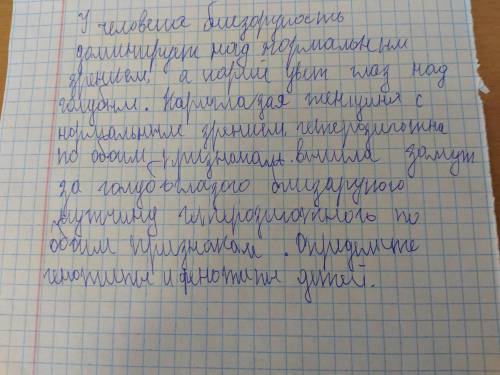 У человека близорукость
доминирует над нормальным
зрением, а карий цвет глаз над
голубым. Кариглазая женщина с
нормальным зрением гетерозиготна
по обоим признакам вышла замуж
за голубоглазого близарукого
мужчину гетерозиготного по
обоим признакам. Определите
генотипы и фенотипы детей.